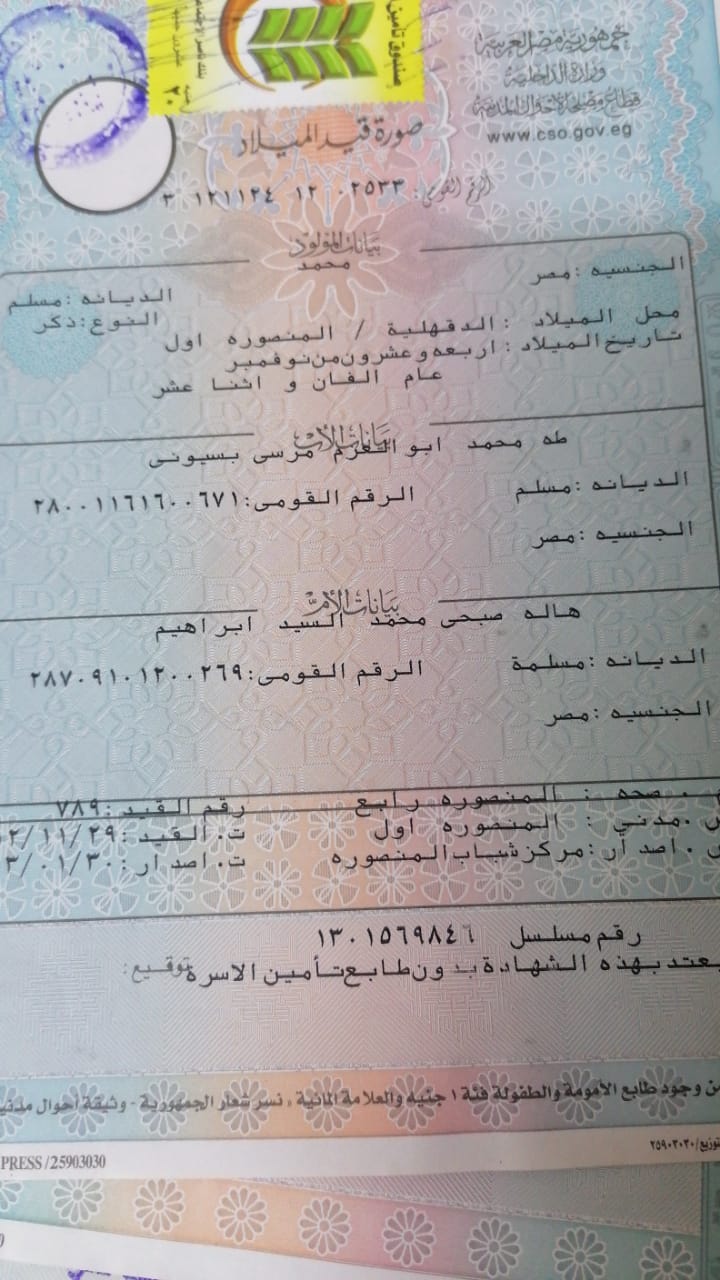 صندوق تأمين
بنك ناصر الاجتماعى
٢٠
جمهورية مصر العربية
وزارة الداخلية
قطاع مصلحة الأحوال المدنية
www.cso.gov.eg
صورة قيد الميلاد
الرقم القومى: ٣ ١٢١١٢٤ ١٢ ٠٢٥٣٣
بيانات المولود
محمد
الجنسيه :مصر
الديانه :مسلم
النوع:ذكر
محل الميلاد : الدقهلية / المنصوره اول
تاريخ الميلاد : اربعه وعشرون من نوفمبر
عام الفان و اثنا عشر
بيانات الأب
طه محمد ابو العزم مرسى بسيونى
الديانه :مسلم الرقم القومى:٢٨٠٠١١٦١٦٠٠٦٧١
الجنسيه :مصر
بيانات الأم
هاله صبحى محمد السيد ابراهيم
الديانه :مسلمة الرقم القومى:٢٨٧٠٩١٠١٢٠٠٢٦٩
الجنسيه :مصر
. صحه : المنصوره رابع رقم القيد :٧٨٩
.مدني : المنصوره اول ت. القيد :٢/١١/٢٩
. اصدار :مركز شباب المنصوره ت. اصدار :٣/٠١/٣٠
رقم مسلسل ١٣٠١٥٦٩٨٤٦
يعتد بهذه الشهادة بدون طابع تأمين الاسرة توقيع:
من وجود طابع الأمومة والطفولة فئة ١ جنيه والعلامة المائية ، نسر شعار الجمهورية - وثيقة أحوال مدنية
توزيع/٢٥٩٠٣٠٣٠
PRESS /25903030